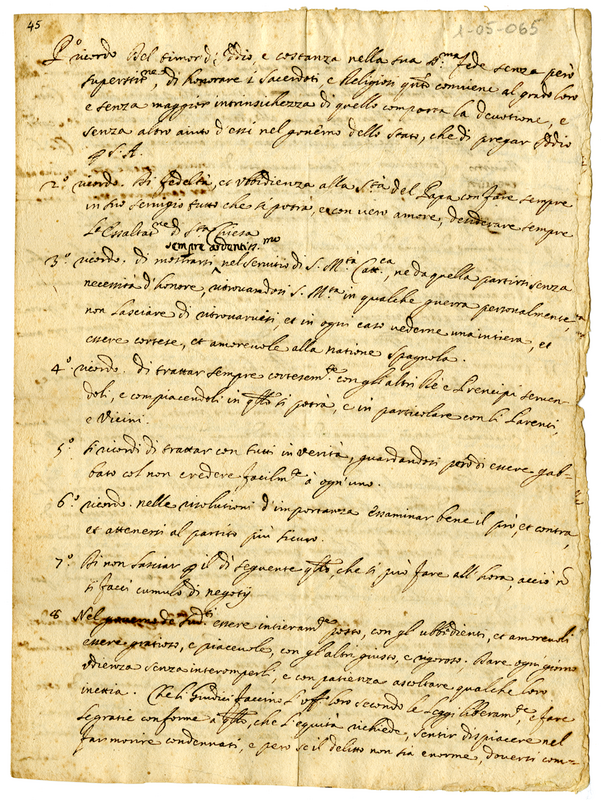 45
1-05-065
P.o ricordo Del timor di Iddio, e costanza nella sua S.ma fede senza però
superstit.ne, di honorare i Sacerdoti, e Religiosi q.to conviene al grado loro
e senza maggior intrinsichezza di quello comporta la devotione, e
senza altro aiuto d'essi nel governo dello stato, che di pregar Iddio
p S. A.
2.o ricordo. Di fedeltà, et ubbidienza alla S.tà del Papa con fare sempre
in suo servigio tutto che si potrà, et con vero amore, desiderare sempre
l'essaltat.ne di S.ta Chiesa
sempre ardentiss.mo
3.o ricordo. di mostrarsi nel servitio di S. M.tà Catt.ca, ne da quella partirsi senza
necessità d'honore, ritrovandosi S. M.tà in qualche guerra personalmente,
non lasciare di ritrovarvisi, et in ogni caso vederne una intiera, et
essere cortese, et amorevole alla natione spagnola.
4.o ricordo. di trattar sempre cortesem.te con gli altri Rè e Prencipi serven=
doli, e compiacendoli in q.to si potrà, e in particolare con li Parenti,
e Vicini.
5.o si ricordi di trattar con tutti in verità, guardandosi però di essere gab=
bato col non credere facilm.te à ogn'uno.
6.o ricordo. nelle risolutioni d'importanza essaminar bene il pro, et contra,
et attenersi al partito più sicuro.
7.o Di non lasciar p il dì seguente q.to, che si può fare all hora, acciò nō
si facci cumulo di negotij
8 Nel essere intieram.te posto, con gl'ubbidienti, et amorevoli
essere gratioso, e piacevole, con gli altri giusto, e rigoroso. Dare ogni giorno
udienza senza interomperli, e con patienza ascoltare qualche loro
inettia. Che li Giudici faccino l'off.o loro secondo le leggi liberam.te, e fare
le gratie conforme à q.to, che l'equità richiede, sentir dispiacere nel
far morire condennati, e però se il delitto non sia enorme, doversi com=